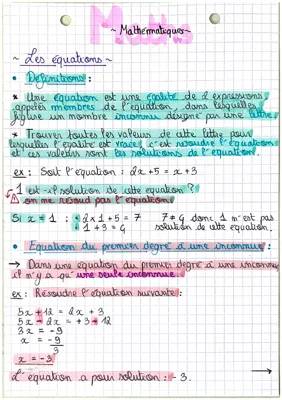 Maths
~ Mathématiques ~
~ Les équations ~
• Définitions :
* Une équation est une égalité de 2 expressions,
appelés membres de l'équation, dans lesquelles
figure un membre inconnu désigné par une lettre.
* Trouver toutes les valeurs de cette lettre pour
lesquelles l'égalité est vraie, c'est résoudre l'équation
et ces valeurs sont les solutions de l'équation.
ex : Soit l'équation : 2x + 5 = x + 3
1 est-il solution de cette équation ?
on me resoud pas l'équation.
Si x = 1 : 2 x 1 + 5 = 7 7 ≠ 4 donc 1 n'est pas
1 + 3 = 4 solution de cette équation.
• Equation du premier degré à une inconnue :
→ Dans une équation du premier degré à une inconnue
il n'y a qu'une seule inconnue.
ex : Résoudre l'équation suivante :
5x + 12 = 2x + 3
5x - 2x = + 3 - 12
3x = -9
x = -9
3
x = -3
L'équation a pour solution : - 3.